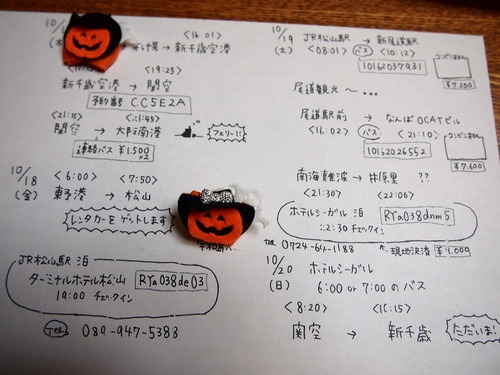 10/1
(木) 札幌→新千歳空港
<16:01>
<19:25>
新千歳空港→関空
予約番号 CC5E2A
<21:10> <21:45>
関空→大阪南港 フェリー!!
連絡バス ¥1,500 ×2
10/18 <6:00> <7:50>
(金) 東予港→松山
レンタカーをゲットします
JR松山駅 泊
ターミナルホテル松山 RYa038de03
19:00 チェックイン
Tel 089-947-5388
10/19 JR松山駅→新尾道駅
(土) <08:01> バス <10:12>
10162037931
コンビニ
¥7,200
尾道観光〜...
尾道駅前→なんばOCATビル
<16:02> バス <21:10>
10162026552
コンビニ
¥7,600
南海難波→井原里 ??
<21:30> <22:06>
ホテルシーガル 泊 RYa038dnm5
22:30 チェックイン
TEL 0724-64-1188 現地決済 ¥7,000
10/20 ホテルシーガル
(日) 6:00 or 7:00 のバス
<8:20> <10:15>
関空→新千歳 ただいま!